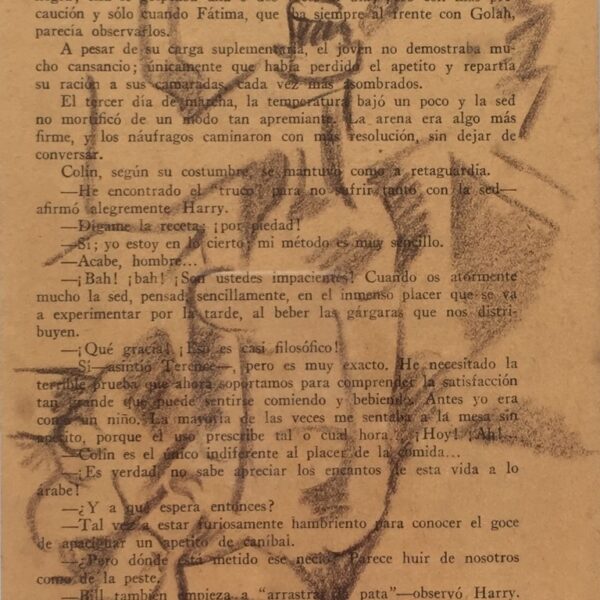 caución y sólo cuando Fátima, que iba siempre al frente con Golah,
parecía observarlos.
A pesar de su carga suplementaria, el joven no demostraba mu-
cho cansancio; únicamente que había perdido el apetito y repartía
su ración a sus camaradas, cada vez más asombrados.
El tercer día de marcha, la temperatura bajó un poco y la sed
no mortificó de un modo tan apremiante. La arena era algo más
firme, y los náufragos caminaron con más resolución, sin dejar de
conversar.
Colín, según su costumbre, se mantuvo como a retaguardia.
—He encontrado el "truco" para no sufrir tanto con la sed—
afirmó alegremente Harry.
—Dígame la receta; ¡por piedad!
—Sí; yo estoy en lo cierto; mi método es muy sencillo.
—Acabe, hombre...
—¡Bah! ¡bah! ¡Son ustedes impacientes! Cuando os atormente
mucho la sed, pensad, sencillamente, en el inmenso placer que se va
a experimentar por la tarde, al beber las gárgaras que nos distri-
buyen.
—¡Qué gracia! ¡Eso es casi filosófico!
—Sí—asintió Terence—, pero es muy exacto. He necesitado la
terrible prueba que ahora soportamos para comprender la satisfacción
tan grande que puede sentirse comiendo y bebiendo. Antes yo era
como un niño. La mayoría de las veces me sentaba a la mesa sin
apetito, porque el uso prescribe tal o cual hora... ¡Hoy! ¡Ah!...
—Colín es el único indiferente al placer de la comida...
—¡Es verdad, no sabe apreciar los encantos de esta vida a lo
árabe!
—¿Y a qué espera entonces?
—Tal vez a estar furiosamente hambriento para conocer el goce
de apaciguar un apetito de caníbal.
—¿Pero dónde está metido ese necio? Parece huir de nosotros
como de la peste.
—Bill también empieza a "arrastrar la pata"—observó Harry.